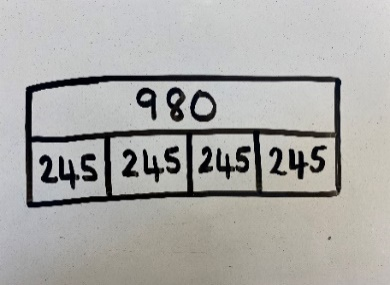 980
245 245 245 245